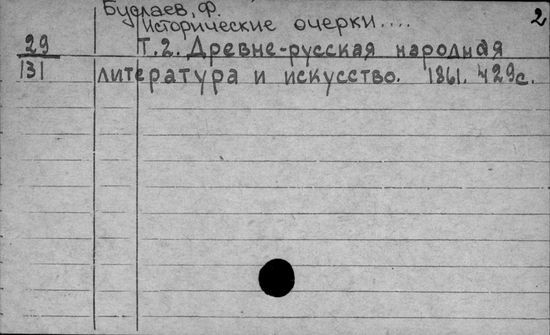 Буслаев, Ф.
Исторические очерки.... 2
29 Т.2. Древне-русская народная
131 литература и искусство. 1861. 429с.